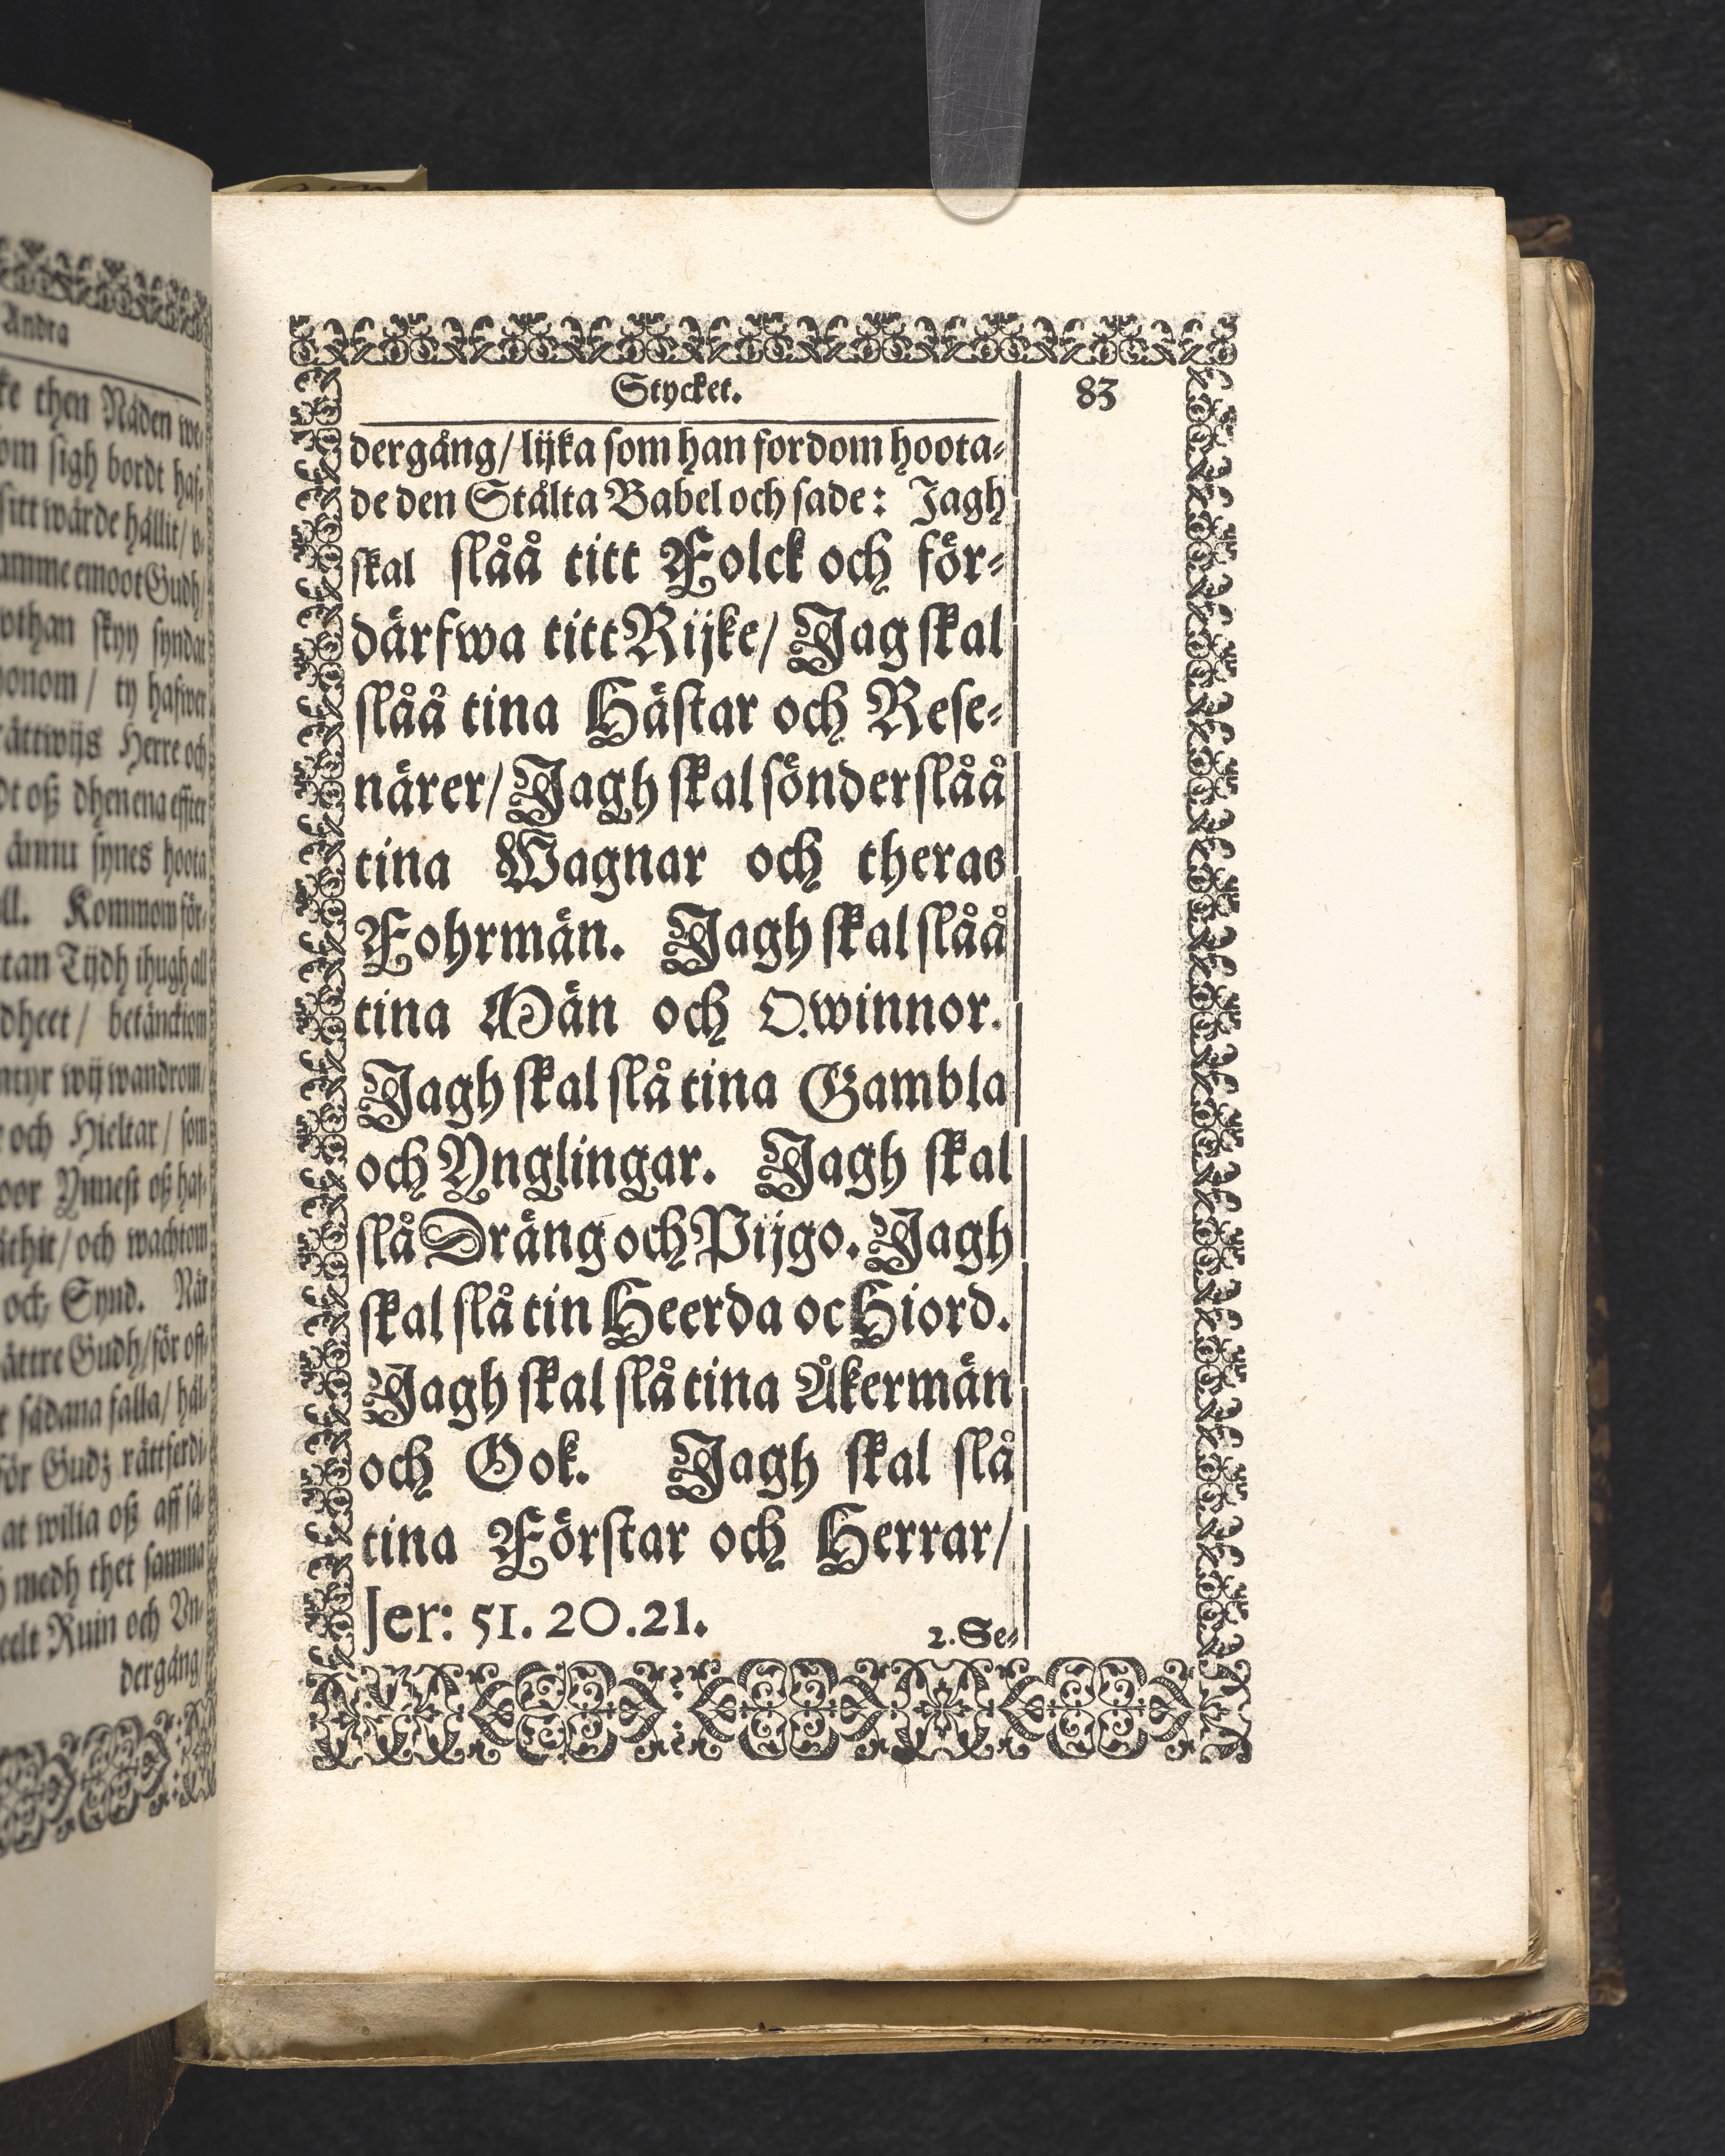 Andra
ke then Nåden we-
om sigh bordt haf-
sitt wärde hållit/ v-
amme emoot Gudh/
othan skyy syndar
honom / ty hafwer
rättwijs Herre och
dt oß dhen ena effter
ännu synes hoota
ll. Kommom för-
tan Tijdh ihugh all
dheet / betänckiom
ntyr wij wandrom/
r och Hieltar / som
oor Ynnest oß haf-
/ och wachtom
och Synd. När
ättre Gudh/ för oft-
t sådana falla/ häl-
för Gudz rättferdi-
at wilia oß aff så-
h medh thet samma
eelt Ruin och Vn-
dergång/
Stycket. 83
dergång/ lijka som han fordom hoota-
de den Stålta Babel och sade: Jagh
skal slåå titt Folck och för-
därfwa titt Rijke/ Jag skal
slåå tina Hästar och Rese-
närer/ Jagh skal sönderslåå
tina Wagnar och theras
Fohrmän. Jagh skal slåå
tina Män och Qwinnor.
Jagh skal slå tina Gambla
och Ynglingar. Jagh skal
slå Dräng och Pijgo. Jagh
skal slå tin Heerda oc Hiord.
Jagh skal slå tina Åkermän
och Ook. Jagh skal slå
tina Förstar och Herrar/
Jer: 51. 20.21. 2. Se-